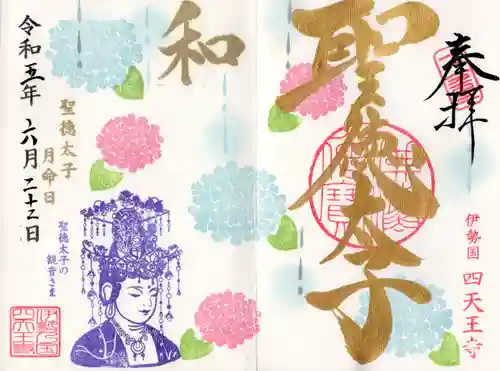 奉拝
聖徳太子
伊勢国 四天王寺
和
令和五年 六月二十二日
聖徳太子
月命日
聖徳太子の
観音さま